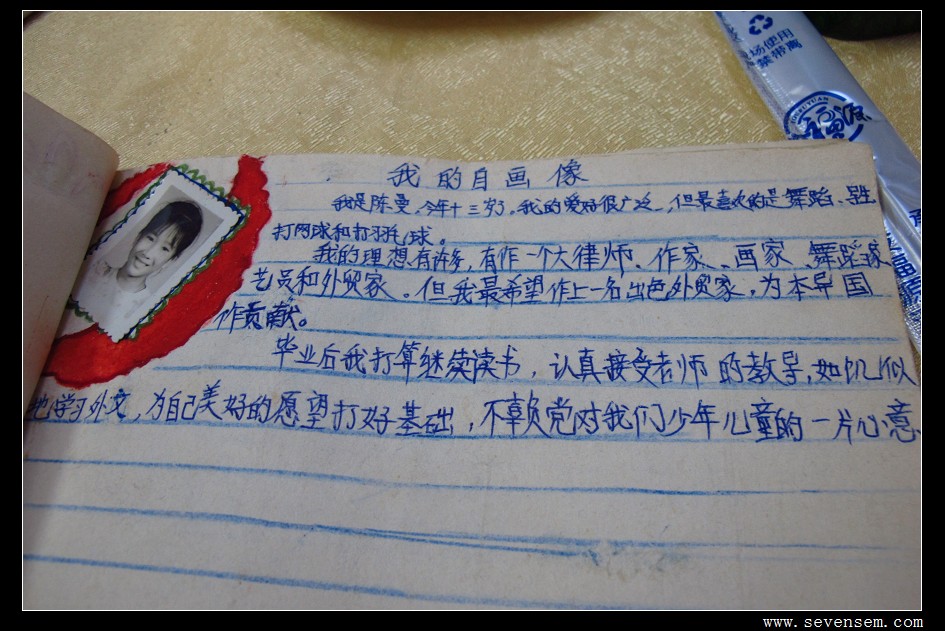 我的自画像
我是陈曼，今年十三岁，我的爱好很广泛，但最喜欢的是舞蹈、
打网球和打羽毛球。
我的理想有许多，有作一个大律师、作家、画家、舞蹈家、
艺员和外贸家。但我最希望作上一名出色外贸家，为本早国
作贡献。
毕业后我打算继续读书，认真接受老师的教导，如饥似
地学习外文，为自己美好的愿望打好基础，不辜负党对我们少年儿童的一片心意
场使用
禁带离
FU YUAN
福源
www.sevensem.com